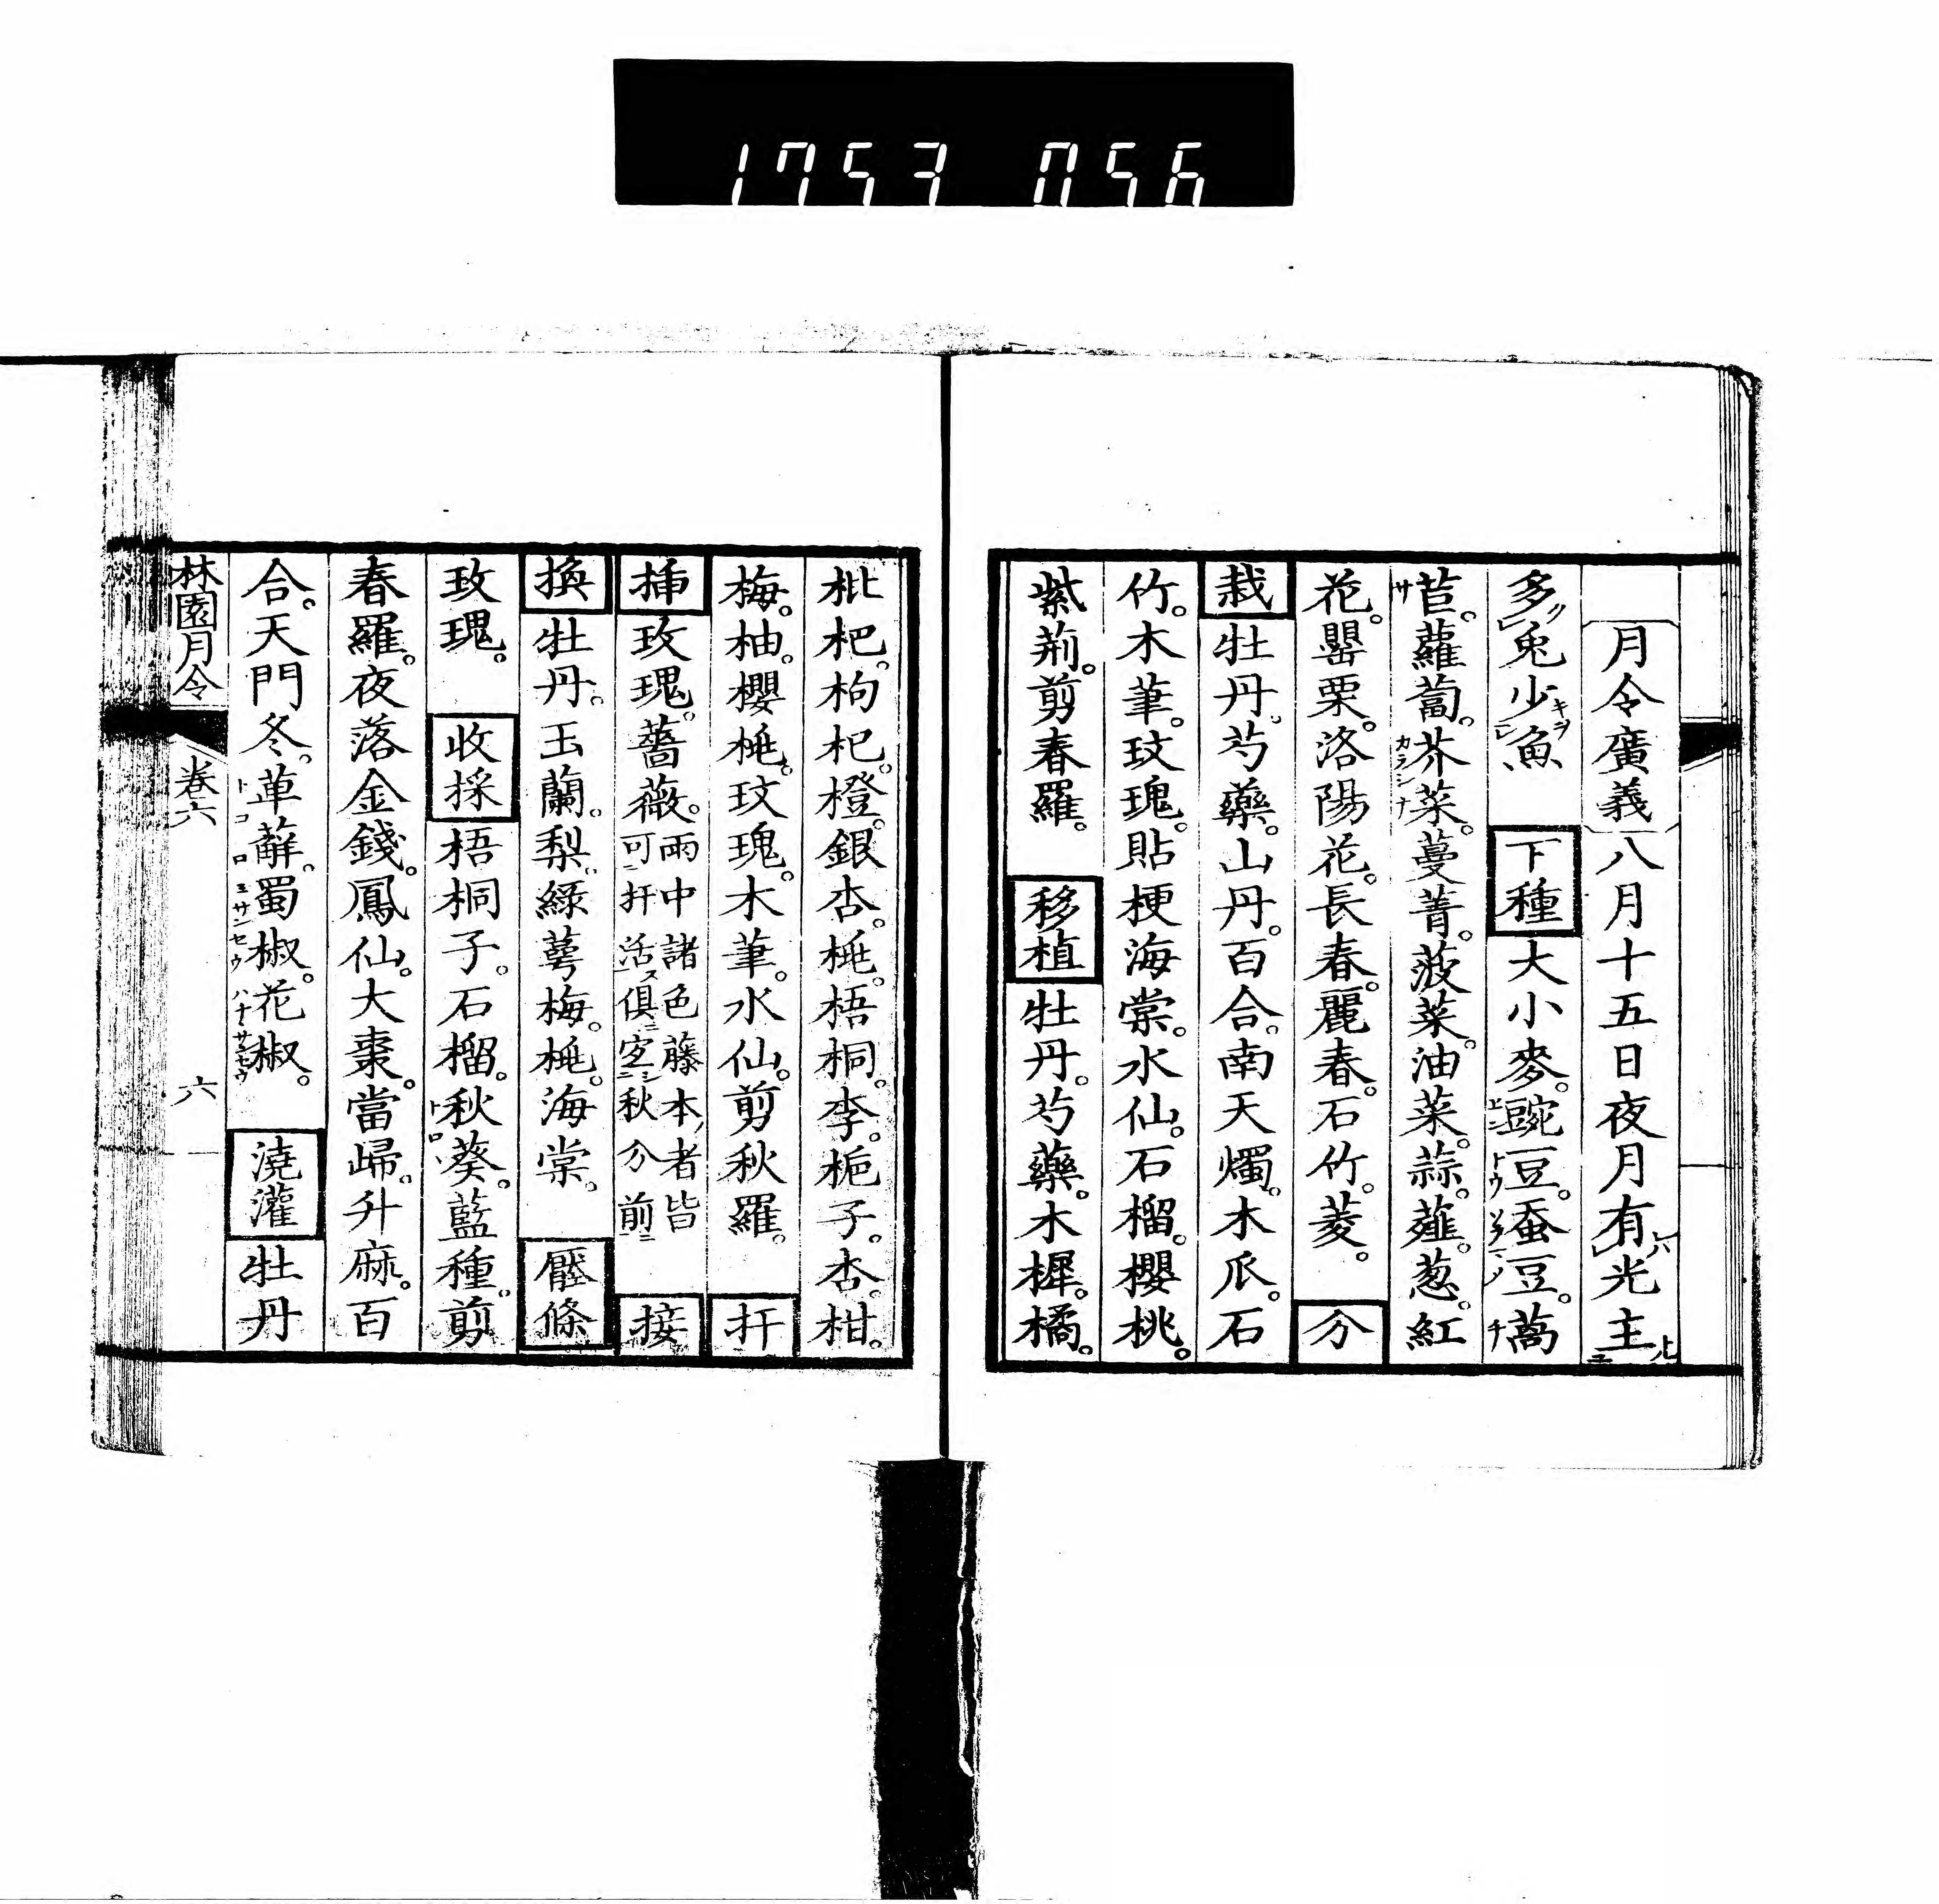 1753 056
月令廣義八月十五日夜月有光主
多兎少魚 下種 大小麥。豌豆。蚕豆。萵
苣。蘿蔔。芥菜。蔓菁。菠菜。油菜。蒜。薤。葱。紅
花。罌粟。洛陽花。長春。麗春。石竹。菱。 分
栽 牡丹。芍藥。山丹。百合。南天燭。木瓜。石
竹。木筆。玟瑰。貼梗海棠。水仙。石榴。櫻桃。
紫荊。剪春羅。 移植 牡丹。芍藥。木樨。橘。
枇杷。枸杞。橙。銀杏。桃。梧桐。李。梔子。杏。柑。
梅。柚。櫻桃。玟瑰。木筆。水仙。剪秋羅。 扦
挿 玫瑰。薔薇。雨中可扦 諸色藤本者皆活俱宜秋分前 接
換 牡丹。玉蘭。梨。綠萼梅。桃。海棠。 壓條
玫瑰。 收採 梧桐子。石榴。秋葵。藍種。剪
春羅。夜落金錢。鳳仙。大棗。當歸。升麻。百
合。天門冬。萆薢。蜀椒。花椒。 澆灌 牡丹
林園月令 卷六 六